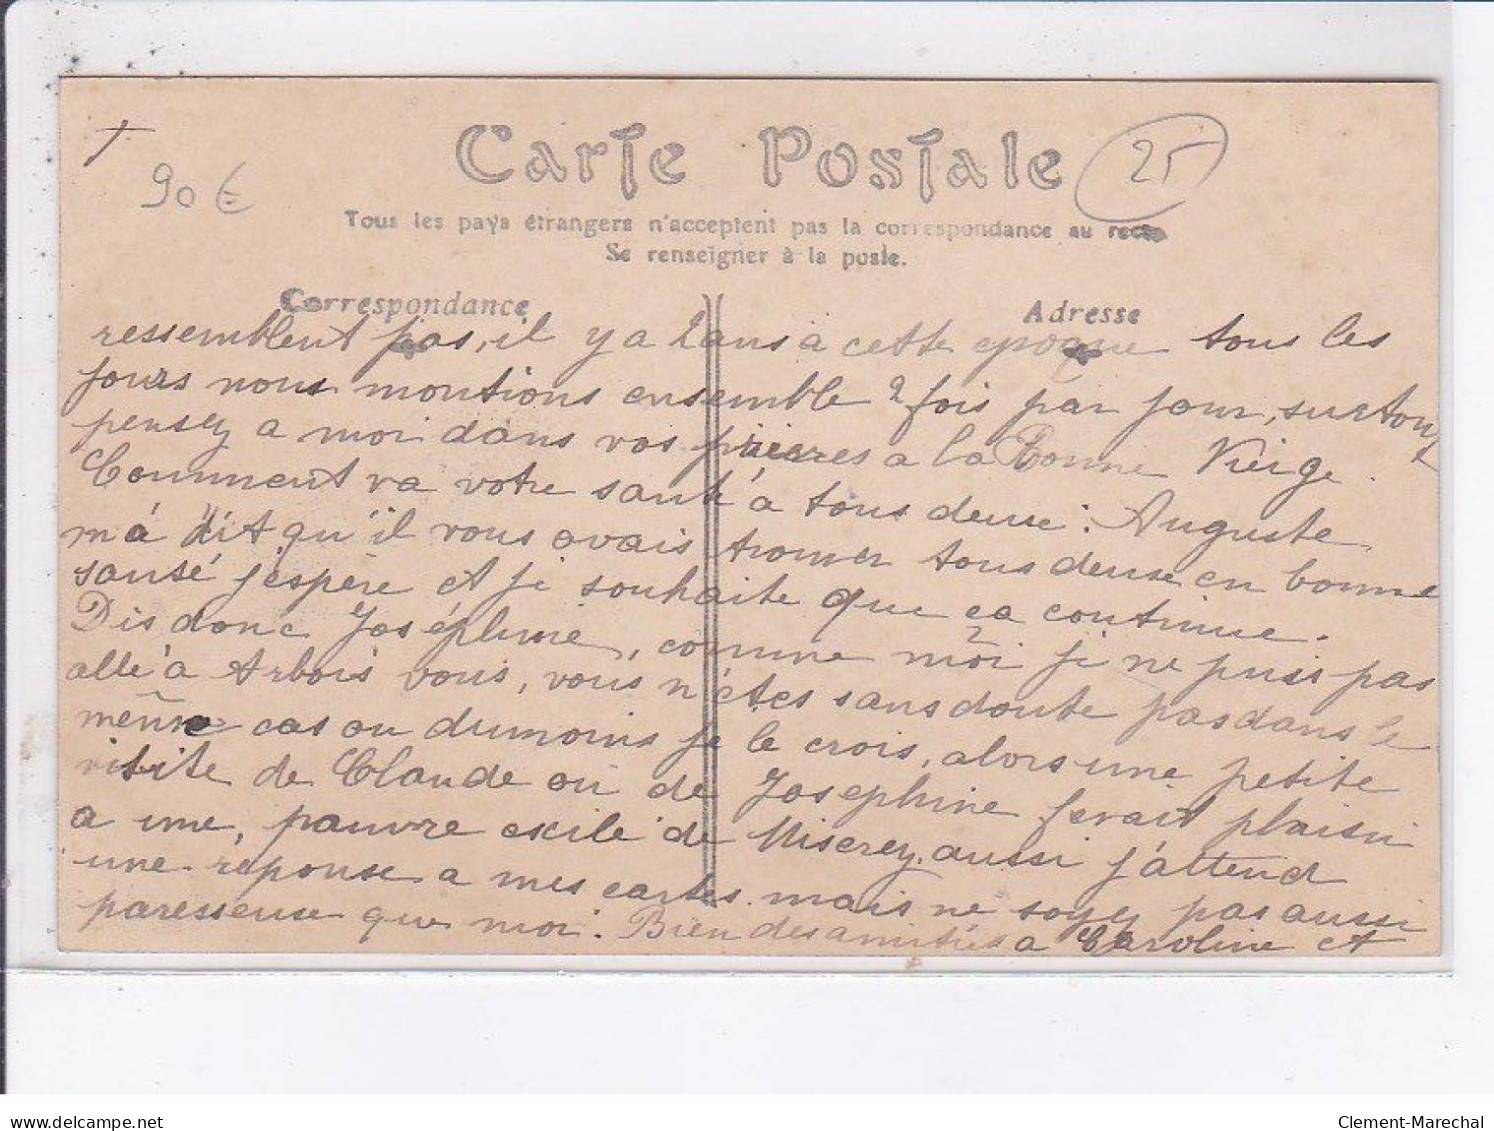 90 €
Carte Postale
25
Tous les pays étrangers n'acceptent pas la correspondance au recto
Se renseigner à la poste.
Correspondance
Adresse
ressemblent pas, il y a 2 ans a cette epoque tous les
jours nous montions ensemble 2 fois par jour, surtout
pensez a moi dans vos prieres a la Bonne Vierge.
Comment va votre santé a tous deux : Auguste
m'a dit qu'il vous avais trouver tous deuse en bonne
santé j'espère et je souhaite que ca continue.
Dis donc Joséphine, comme moi je ne puis pas
allé à Arbois vous, vous n'étes sans doute pas dans le
même cas ou dumoins je le crois, alors une petite
visite de Claude ou de Josephine ferait plaisir
a une, pauvre exilé de Miserey. aussi j'attend
une réponse a mes cartes mais ne soyez pas aussi
paresseuse que moi. Bien des amitiés a Caroline et
delcampe.net
Clement-Marechal